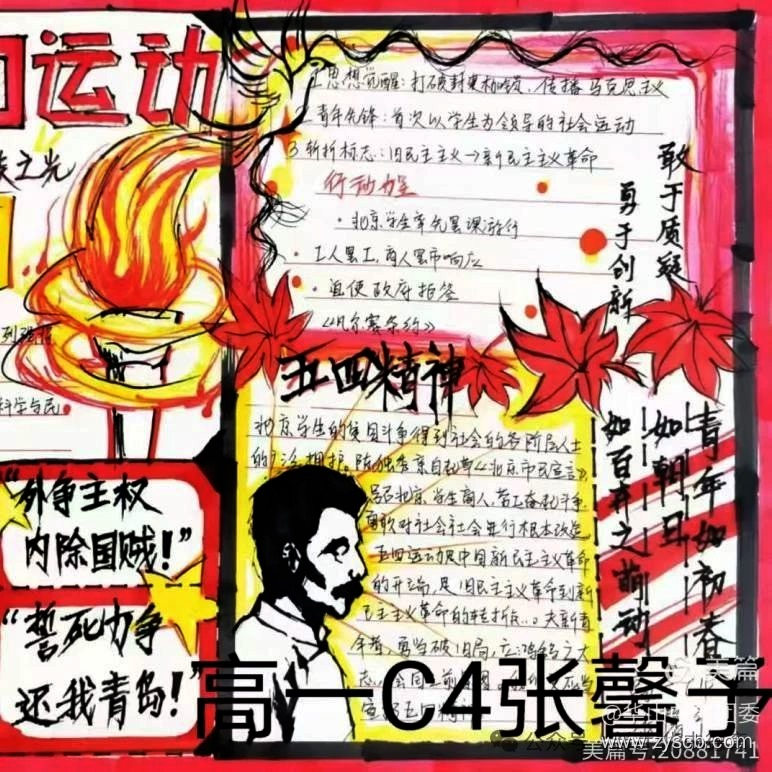 四运动
之光
1思想觉醒：打破封建枷锁，传播马克思主义
2青年先锋：首次以学生为领导的社会运动
3转折标志：旧民主主义→新民主主义革命
行动力量
·北京学生率先罢课游行
·工人罢工，商人罢市响应
·迫使政府拒签
《凡尔赛条约》
敢于质疑
勇于创新
列强
科学与民
五四精神
北京学生的爱国斗争得到社会的各阶层人士
的广泛拥护。陈独秀亲自起草《北京市民宣言》
号召北京学生商人、劳工奋起斗争
勇敢对社会社会进行根本改造
五四运动是中国新民主主义革命
的开端，是旧民主主义革命到新
民主主义革命的转折
年者，勇当破旧局，立鸿鹄之大
志
青年如初春
如朝日
如百卉之萌动
“外争主权
内除国贼！”
“誓死力争
还我青岛！”
高一C4张馨予
美篇
公众号
www.zyscb.com
美篇号:20881741